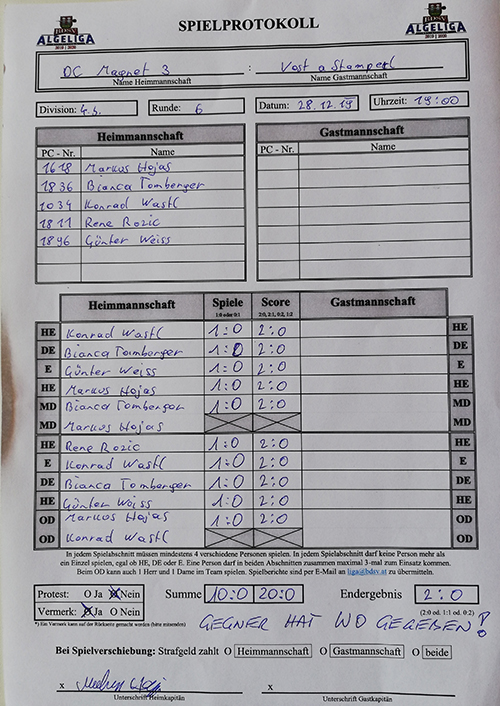 BDSV ALGELIGA 2019 | 2020 SPIELPROTOKOLL BDSV ALGELIGA 2019 | 2020
DC Magnet 3 : Vast a Stamperl
Name Heimmannschaft Name Gastmannschaft
Division: 4.3. Runde: 6 Datum: 28.12.19 Uhrzeit: 19:00
Heimmannschaft Gastmannschaft
PC - Nr. Name PC - Nr. Name
1618 Markus Hojas
1836 Bianca Tomberger
1034 Konrad Wastl
1811 Rene Rozic
1896 Günter Weiss
Heimmannschaft Spiele Score Gastmannschaft
1:0 oder 0:1 2:0, 2:1, 0:2, 1:2
HE Konrad Wastl 1:0 2:0 HE
DE Bianca Tomberger 1:0 2:0 DE
E Günter Weiss 1:0 2:0 E
HE Markus Hojas 1:0 2:0 HE
MD Bianca Tomberger 1:0 2:0 MD
MD Markus Hojas MD
HE Rene Rozic 1:0 2:0 HE
E Konrad Wastl 1:0 2:0 E
DE Bianca Tomberger 1:0 2:0 DE
HE Günter Weiss 1:0 2:0 HE
OD Markus Hojas 1:0 2:0 OD
OD Konrad Wastl OD
In jedem Spielabschnitt müssen mindestens 4 verschiedene Personen spielen. In jedem Spielabschnitt darf keine Person mehr als
ein Einzel spielen, egal ob HE, DE oder E. Eine Person darf in beiden Abschnitten zusammen maximal 3-mal zum Einsatz kommen.
Beim OD kann auch 1 Herr und 1 Dame im Team spielen. Spielberichte sind per E-Mail an liga@bdsv.at zu übermitteln.
Protest: O Ja O Nein Summe 10:0 20:0 Endergebnis 2:0
Vermerk: O Ja O Nein (2:0 od. 1:1 od. 0:2)
*) Ein Vermerk kann auf der Rückseite gemacht werden (bitte mitsenden) GEGNER HAT WO GEGEBEN!
Bei Spielverschiebung: Strafgeld zahlt O Heimmannschaft O Gastmannschaft O beide
x x
Unterschrift Heimkapitän Unterschrift Gastkapitän